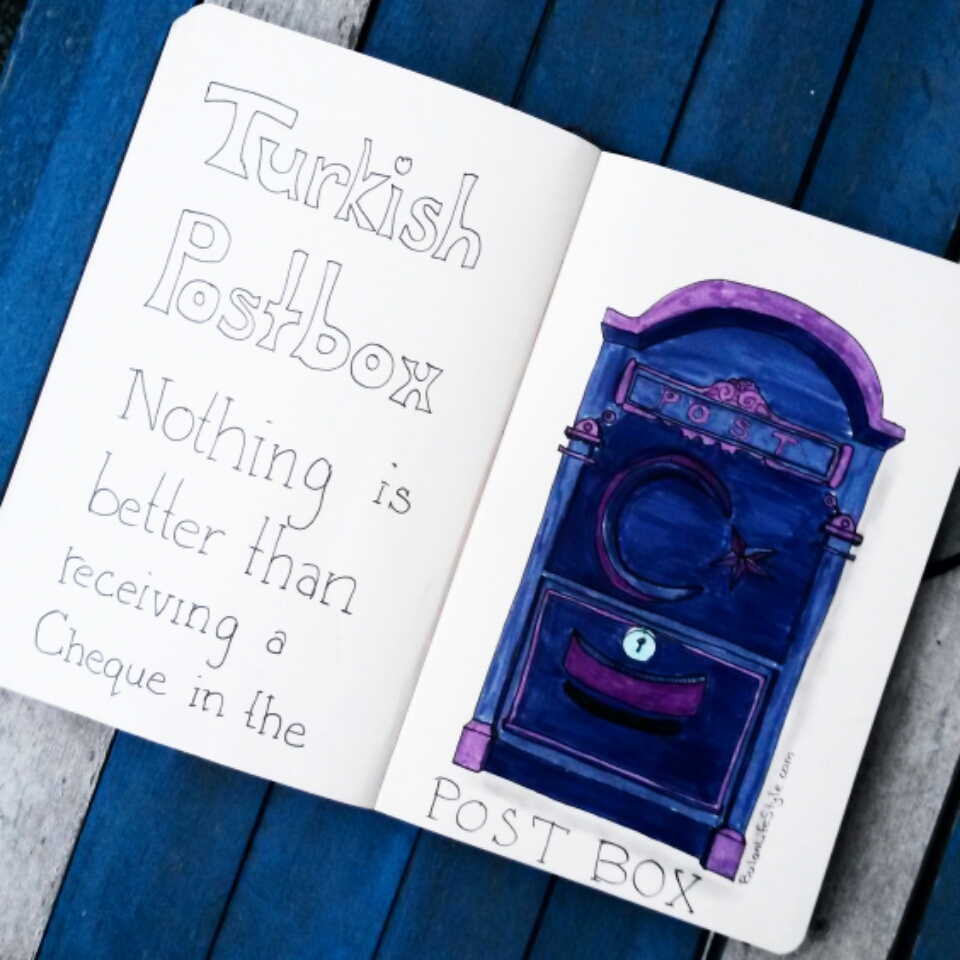 Turkish
Postbox
Nothing is
better than
receiving a
Cheque in the
POST
POST BOX
BalanLifeStyle.com